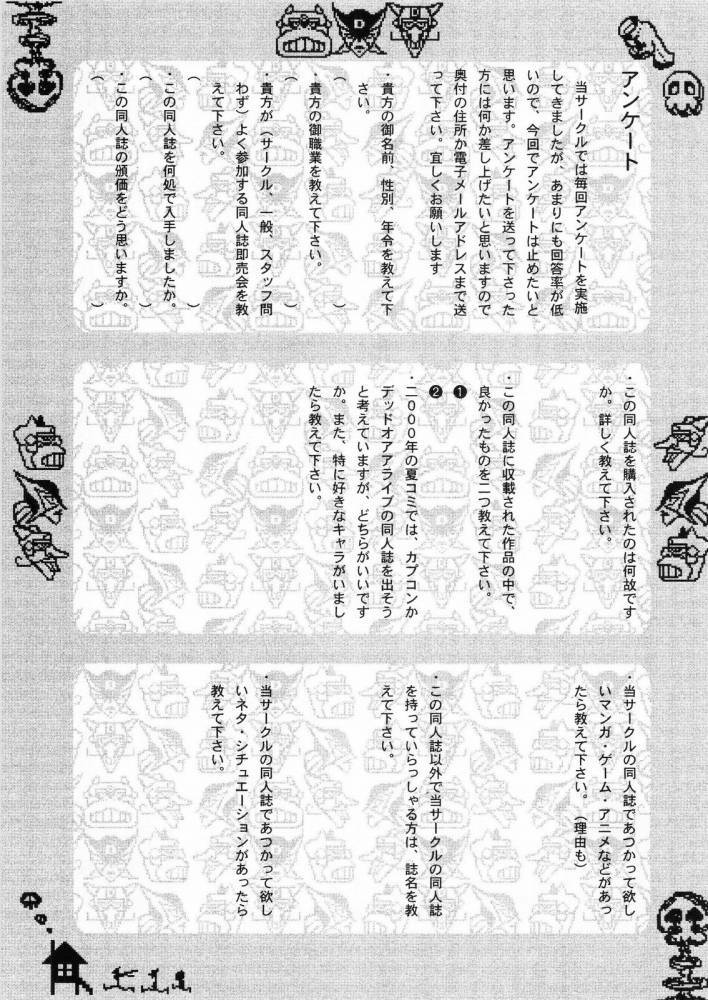 アンケート
当サークルでは毎回アンケートを実施
してきましたが、あまりにも回答率が低
いので、今回でアンケートは止めたいと
思います。アンケートを送って下さった
方には何か差し上げたいと思いますので
奥付の住所か電子メールアドレスまで送
って下さい。宜しくお願いします
・貴方の御名前、性別、年令を教えて下
さい。
（　）
・貴方の御職業を教えて下さい。
（　）
・貴方が（サークル、一般、スタッフ問
わず）よく参加する同人誌即売会を教
えて下さい。
（　）
・この同人誌を何処で入手しましたか。
（　）
・この同人誌の頒価をどう思いますか。
（　）
・この同人誌を購入されたのは何故です
か。詳しく教えて下さい。
・この同人誌に収載された作品の中で、
良かったものを二つ教えて下さい。
❶
❷
・二000年の夏コミでは、カプコンか
デッドオアアライブの同人誌を出そう
と考えていますが、どちらがいいです
か。また、特に好きなキャラがいまし
たら教えて下さい。
・当サークルの同人誌であつかって欲し
いマンガ・ゲーム・アニメなどがあっ
たら教えて下さい。（理由も）
・この同人誌以外で当サークルの同人誌
を持っていらっしゃる方は、誌名を教
えて下さい。
・当サークルの同人誌であつかって欲し
いネタ・シチュエーションがあったら
教えて下さい。